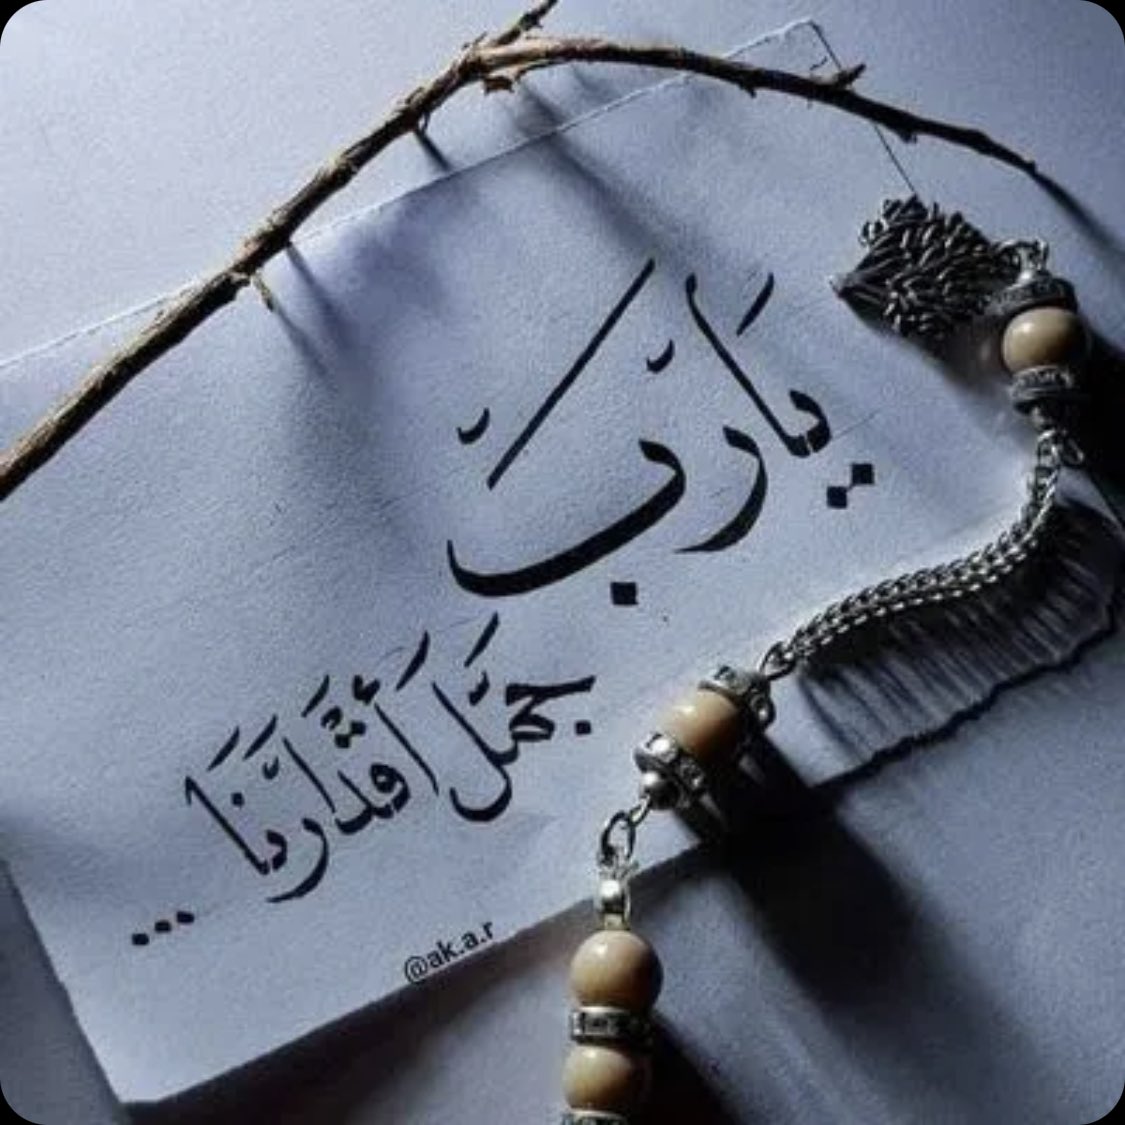 يَا رَبِّ
جَمِّل أَقْدَارَنَا
...
@ak.a.r